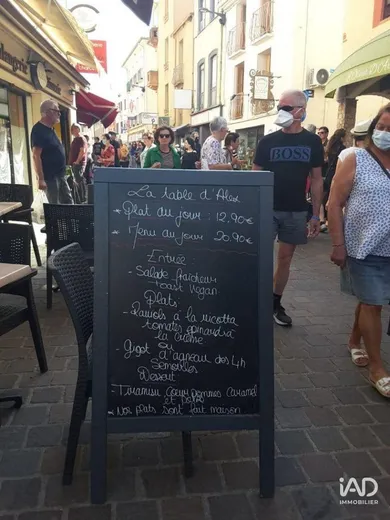 Boulangerie
La table d'Alex
* Plat du jour : 12.90€
* Menu du jour 20.90€
Entrée :
- Salade fraicheur
toast vegan
Plats
- Raviolis à la ricotta
tomates épinards à
la crème
- Gigot ou
d'agneau des 4h
Semoules
Dessert
- Tiramisu Coeur pommes Caramel
et
* Nos plats sont fait maison
BOSS
iAD
IMMOBILIER